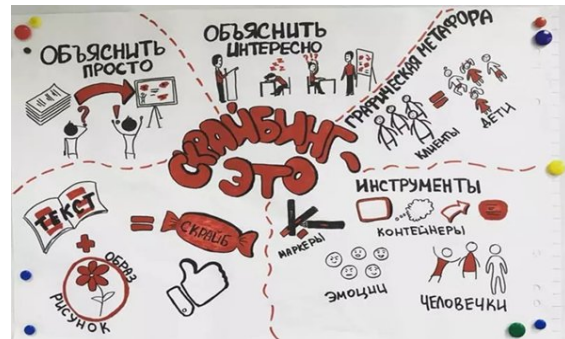 ОБЪЯСНИТЬ
ПРОСТО
ОБЪЯСНИТЬ
ИНТЕРЕСНО
ГРАФИЧЕСКАЯ МЕТАФОРА
КЛИЕНТЫ
=
ДЕТИ
? !
СКРАЙБИНГ,
ЭТО
ТЕКСТ
+
ОБРАЗ
РИСУНОК
=
СКРАЙБ
ИНСТРУМЕНТЫ
МАРКЕРЫ
КОНТЕЙНЕРЫ
ЭМОЦИИ
ЧЕЛОВЕЧКИ